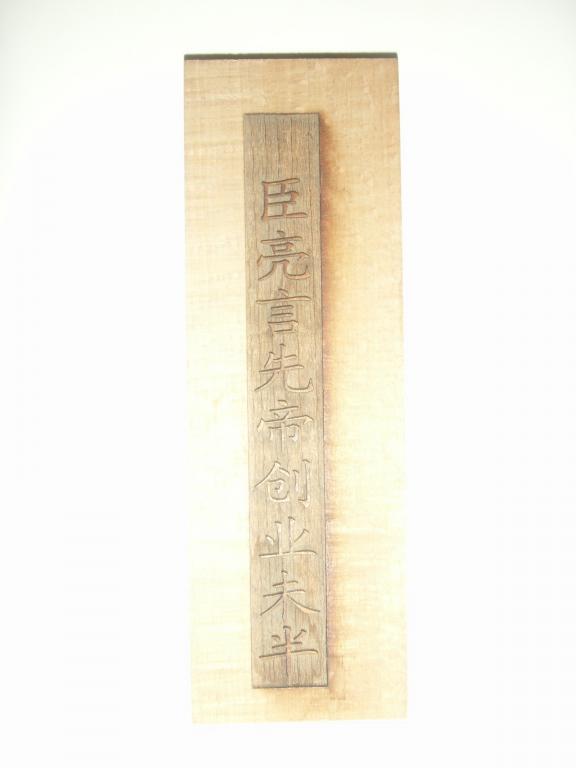 臣亮言先帝创业未半